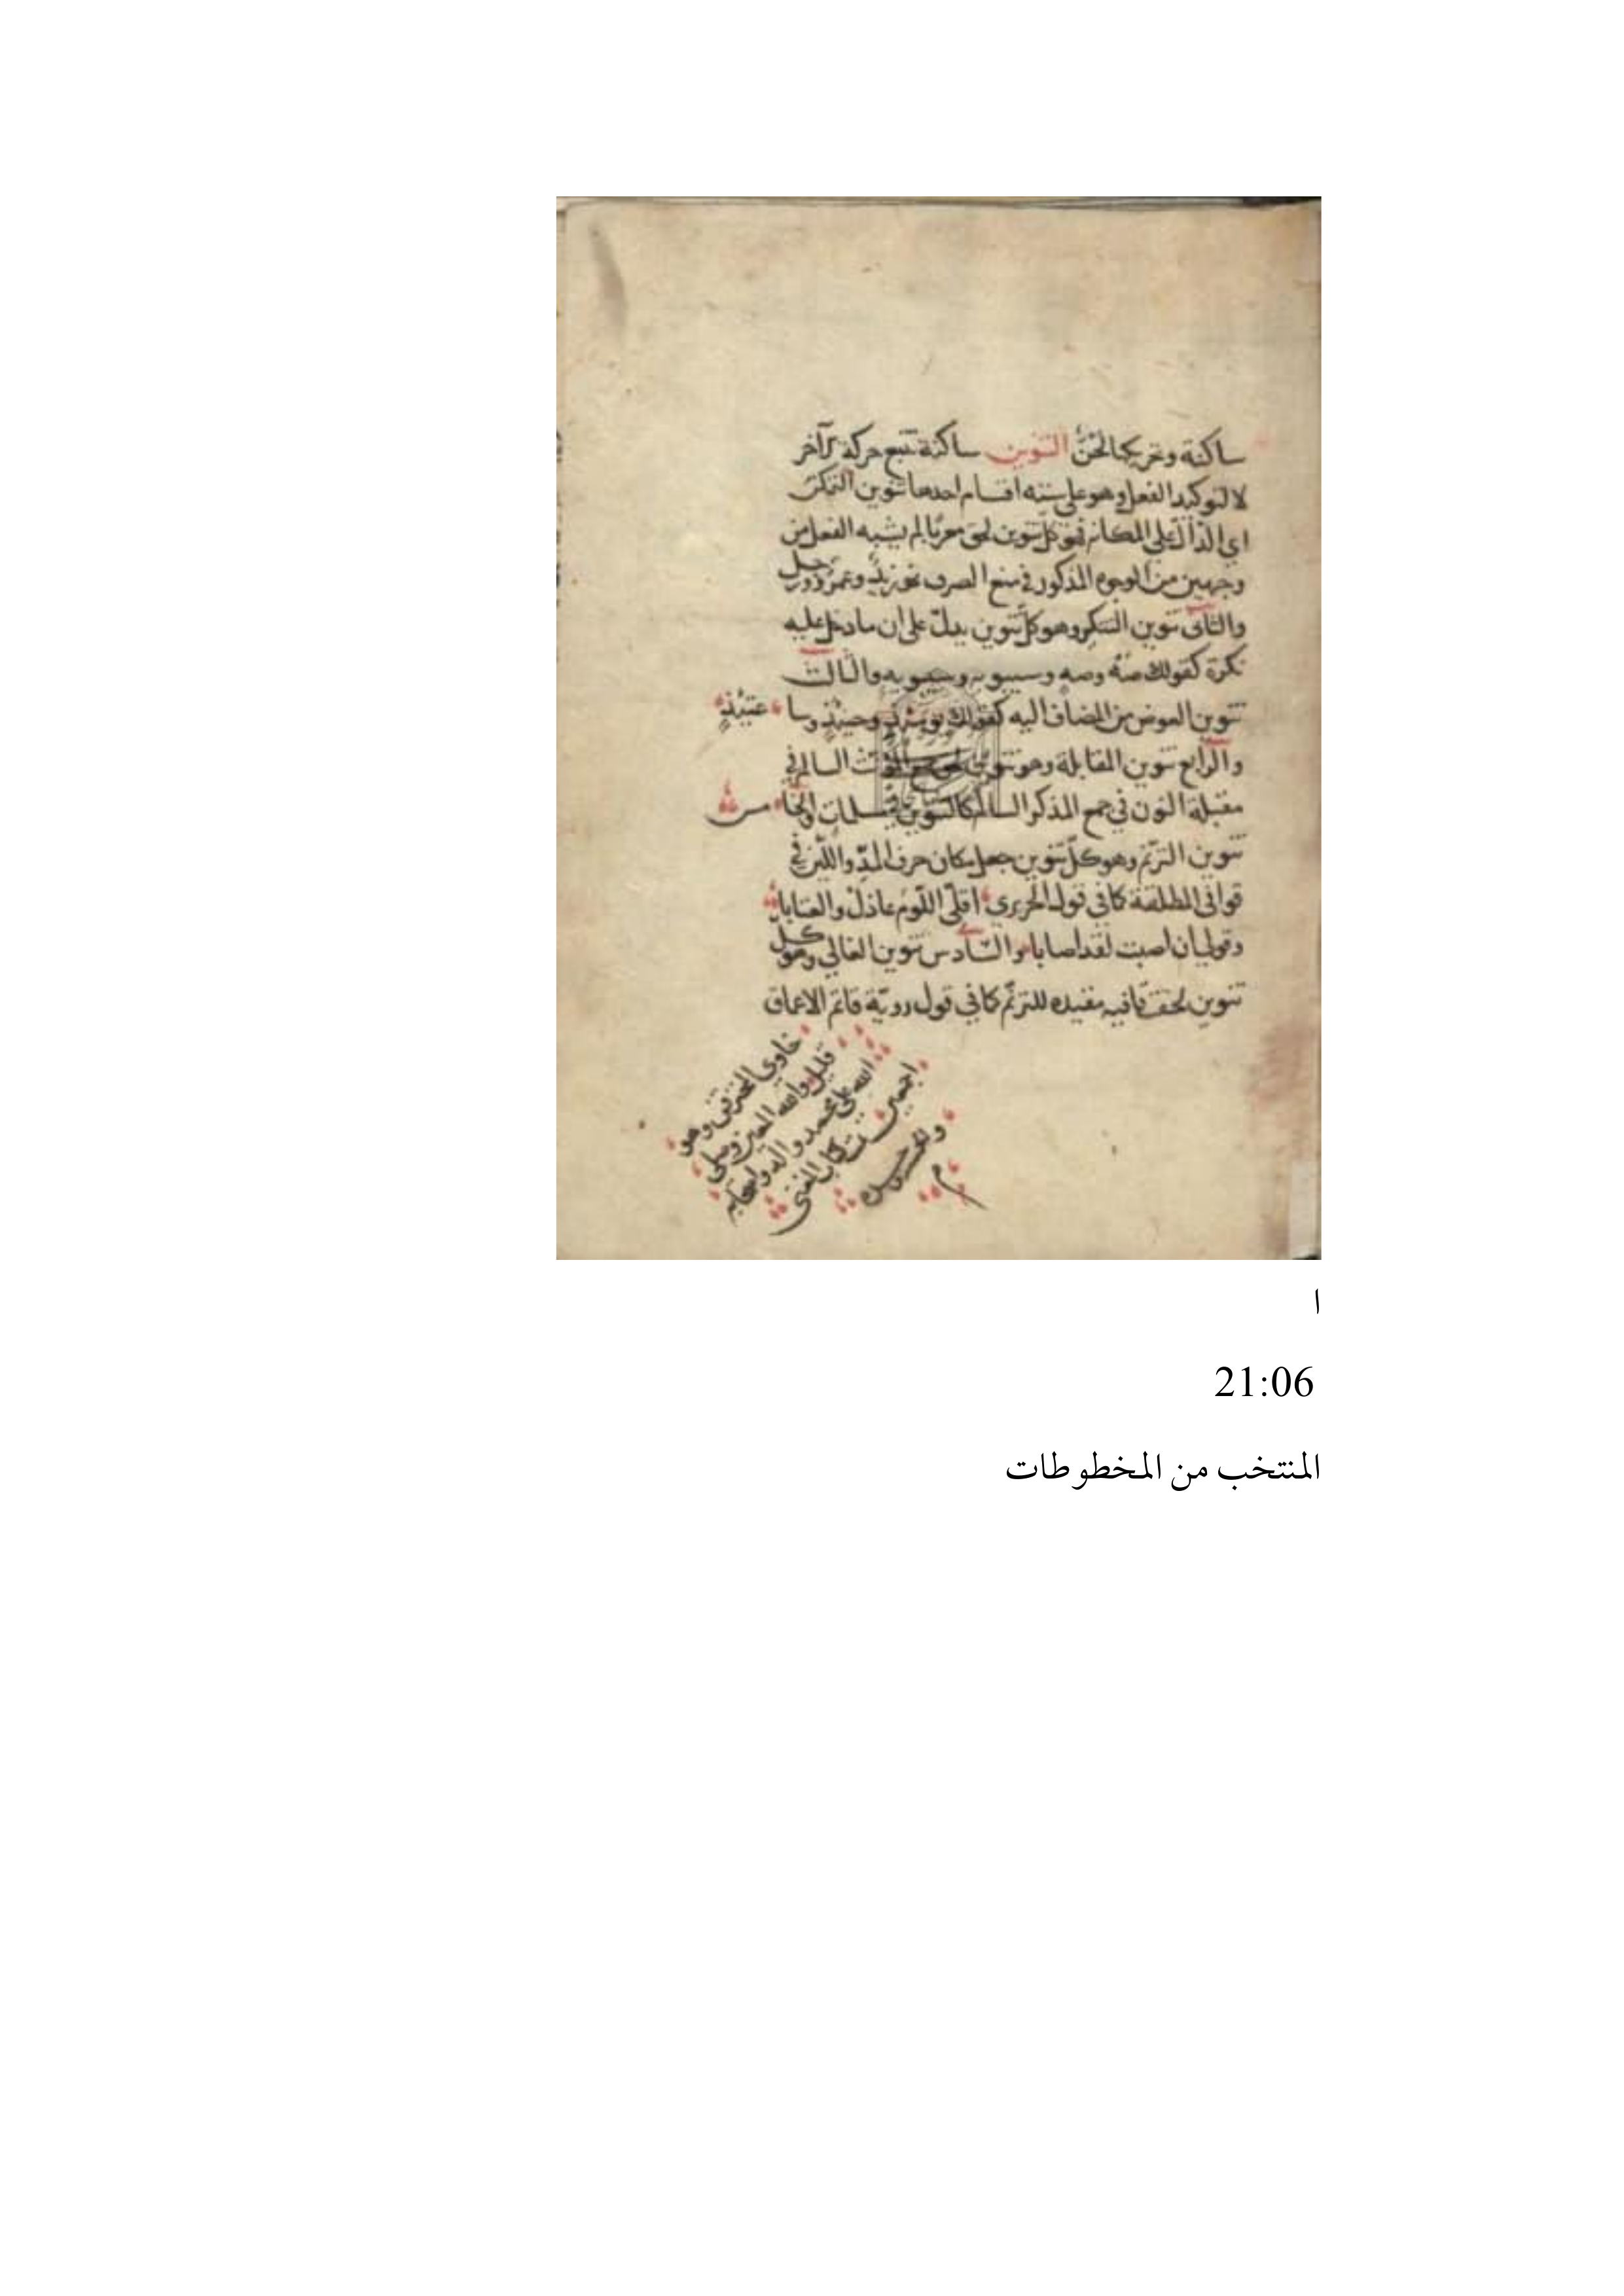 ساكنة وتحريكها لحن التنوين ساكنة تتبع حركة آخر
لا لتوكيد الفعل وهو على ستة اقسام احدها تنوين التمكن
اي الدّال على المكانة فهو كل تنوين لحق معربا لم يشبه الفعل من
وجهين من الوجوه المذكور في منع الصرف نحو زيدٌ وعمرٌو ورجل
والثاني تنوين التنكير وهو كلّ تنوين يدلّ على ان ما دخل عليه
نكرة كقولك صهْ وصهٍ وسيبويه وسيبويهٍ والثالث
تنوين العوض من المضاف اليه كقولك يومئذٍ وحينئذٍ وساعتئذٍ
والرّابع تنوين المقابلة وهو تنوين السالم في
مقبلة النون في جمع المذكر السالم كالتنوين في مسلمات والخامس
تنوين الترنّم وهو كلّ تنوين جعل مكان حرف المدّ واللّين في
قوافي المطلقة كما في قول الحريري اقلّي اللّوم عاذل والعتابا
وقولي ان اصبت لقد اصابا والسّادس تنوين الغالي وهو كلّ
تنوين لحقت قافيه مقيده للترنّم كما في قول روبّة قاتم الاعماق
خاوي المخترقن وهو
قليل والله المعين وصلى
الله على محمد واله واصحابه
اجمعين تمت كتاب المغنى
م
ا
21:06
المنتخب من المخطوطات